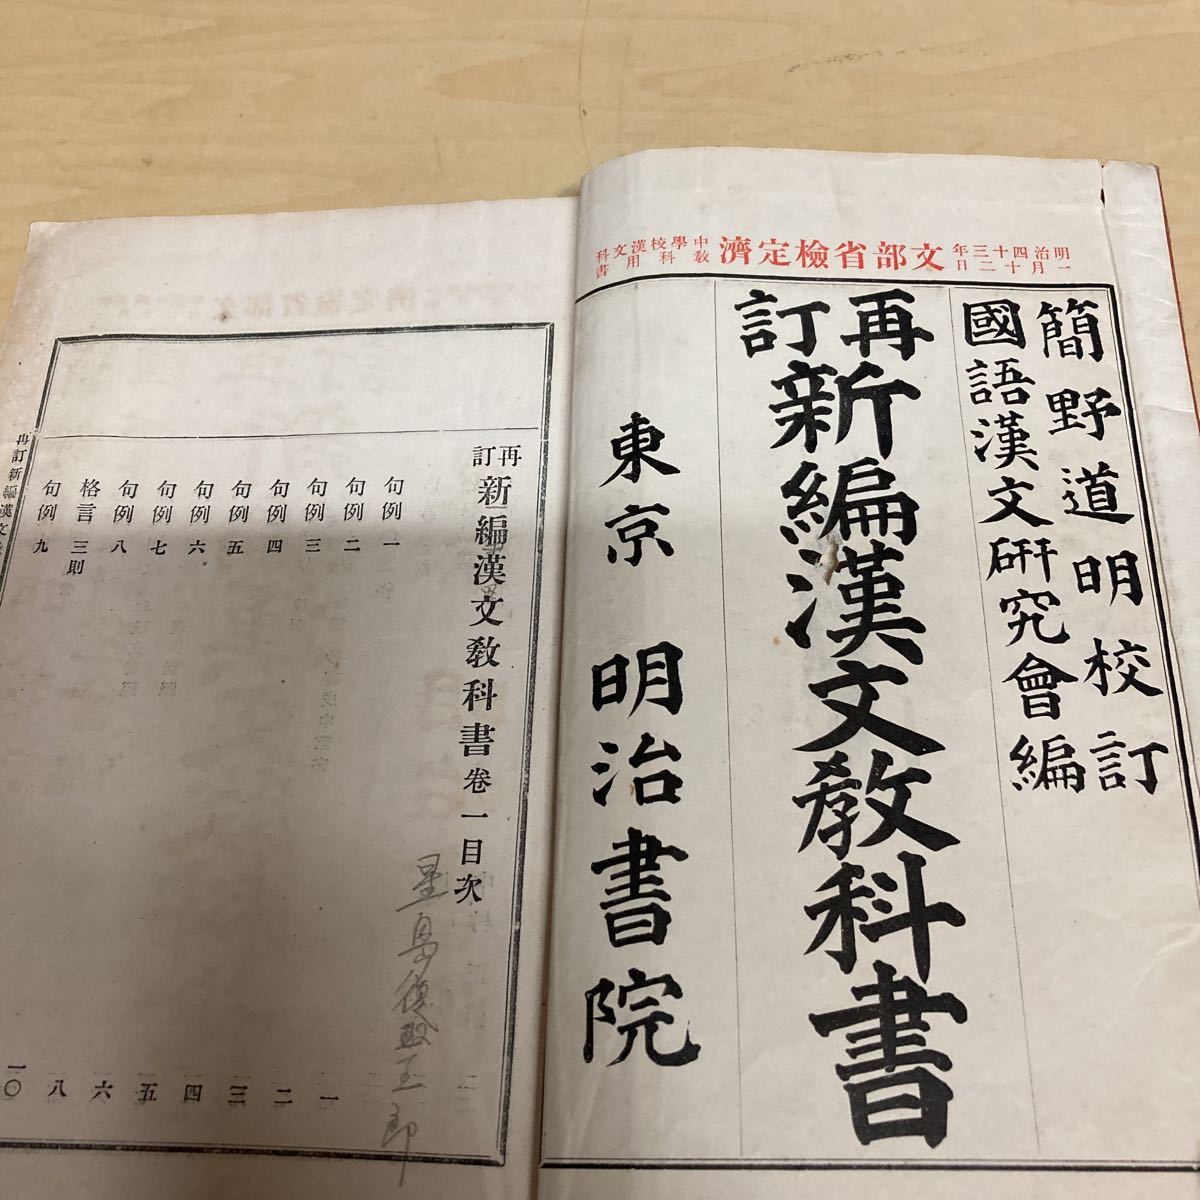 明治四十三年
一月十二日
文部省檢定濟
中學校漢文科
教科用書
簡野道明校訂
國語漢文研究會編
再訂新編漢文教科書
東京 明治書院
再訂新編漢文敎科書卷一目次
星島
句例一
句例二
句例三
句例四
句例五
句例六
句例七
句例八
格言三則
句例九
一
二
三
四
五
六
八
一〇
再訂新編漢文